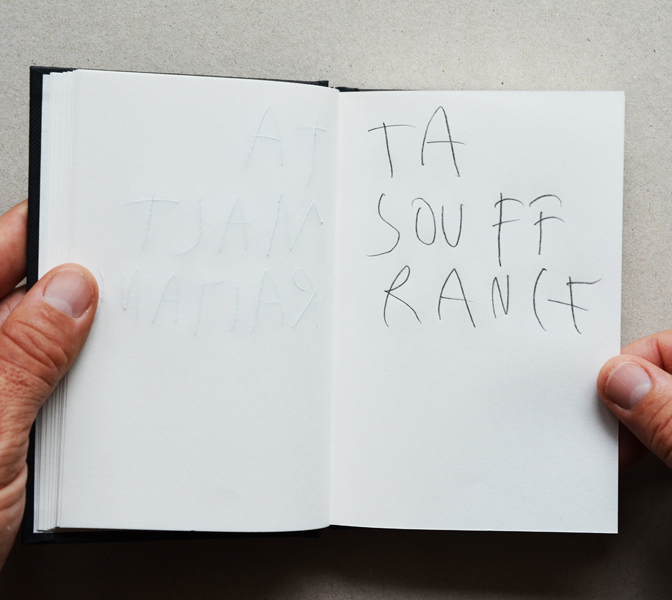 TA
SOUFF
RANCE